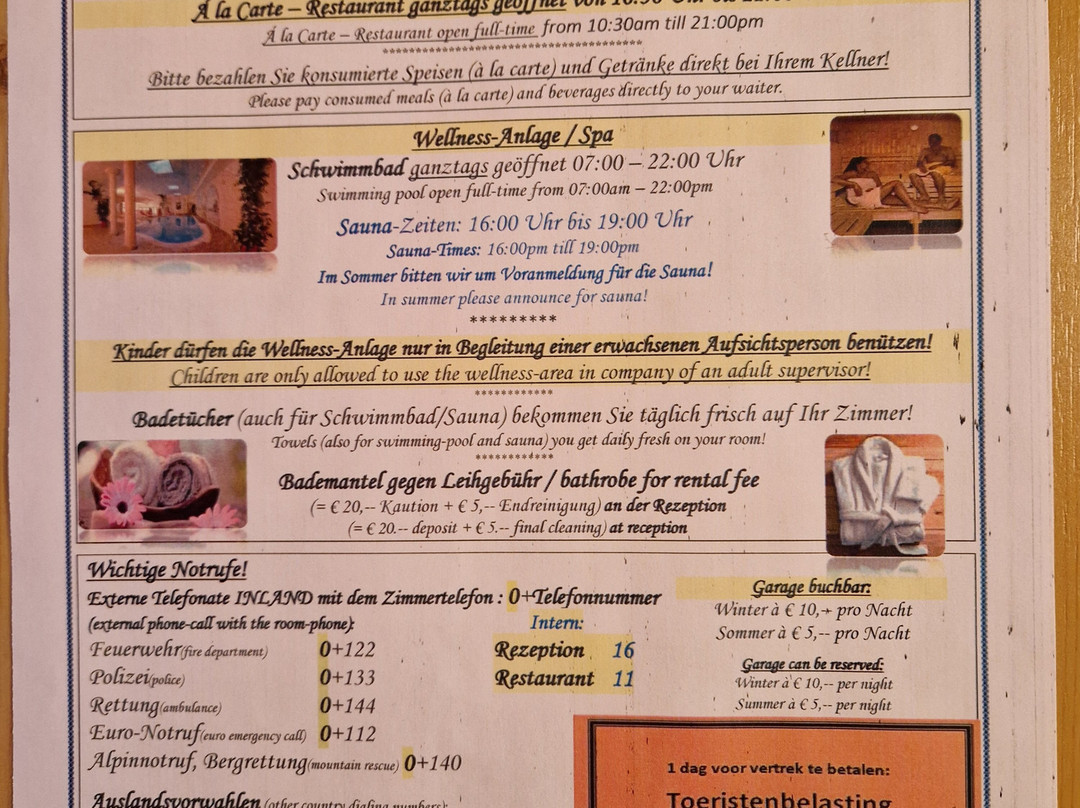 Á la Carte – Restaurant ganztags geöffnet von 10:30 Uhr bis
Á la Carte – Restaurant open full-time from 10:30am till 21:00pm
************************************
Bitte bezahlen Sie konsumierte Speisen (à la carte) und Getränke direkt bei Ihrem Kellner!
Please pay consumed meals (à la carte) and beverages directly to your waiter.
Wellness-Anlage / Spa
Schwimmbad ganztags geöffnet 07:00 – 22:00 Uhr
Swimming pool open full-time from 07:00am – 22:00pm
Sauna-Zeiten: 16:00 Uhr bis 19:00 Uhr
Sauna-Times: 16:00pm till 19:00pm
Im Sommer bitten wir um Voranmeldung für die Sauna!
In summer please announce for sauna!
*********
Kinder dürfen die Wellness-Anlage nur in Begleitung einer erwachsenen Aufsichtsperson benützen!
Children are only allowed to use the wellness-area in company of an adult supervisor!
************
Badetücher (auch für Schwimmbad/Sauna) bekommen Sie täglich frisch auf Ihr Zimmer!
Towels (also for swimming-pool and sauna) you get daily fresh on your room!
************
Bademantel gegen Leihgebühr / bathrobe for rental fee
(= € 20,-- Kaution + € 5,-- Endreinigung) an der Rezeption
(= € 20.-- deposit + € 5.-- final cleaning) at reception
Wichtige Notrufe!
Externe Telefonate INLAND mit dem Zimmertelefon : 0+Telefonnummer
(external phone-call with the room-phone):
Feuerwehr(fire department) 0+122
Polizei(police) 0+133
Rettung(ambulance) 0+144
Euro-Notruf(euro emergency call) 0+112
Alpinnotruf, Bergrettung(mountain rescue) 0+140
Auslandsvorwahlen (other country dialing numbers):
Intern:
Rezeption 16
Restaurant 11
Garage buchbar:
Winter à € 10,-- pro Nacht
Sommer à € 5,-- pro Nacht
Garage can be reserved:
Winter à € 10,-- per night
Summer à € 5,-- per night
1 dag voor vertrek te betalen:
Toeristenbelasting